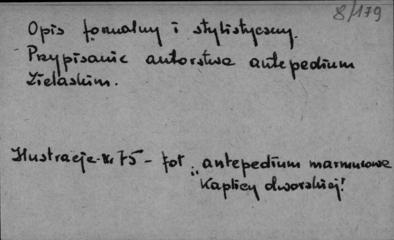 8/179
Opis formalny i stylistyczny.
Przypisanie autorstwa antepedium
Zielaskim.
Ilustracje Nr 75 - fot „antepedium marmurowe
Kaplicy dworskiej!